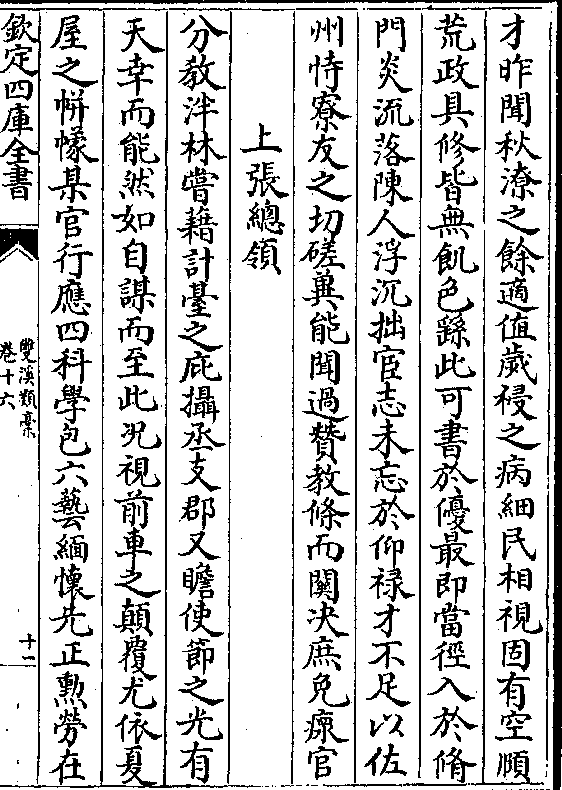 才昨聞秋潦之餘適值歲祲之病細民相視固有空願
荒政具修皆無飢色繇此可書於優最即當徑入於脩
門炎流落陳人浮沉拙宦志未忘於仰禄才不足以佐
州恃寮友之切磋兾能聞過賛教條而關决庶免瘝官
上張總領
分教泮林嘗藉計臺之庇攝丞支郡又瞻使節之光有
天幸而能然如自謀而至此况視前車之顛覆尤依夏
屋之帡幪某官行應四科學包六藝緬懷先正勲勞在
欽定四庫全書
雙溪類藁
卷十六
十一